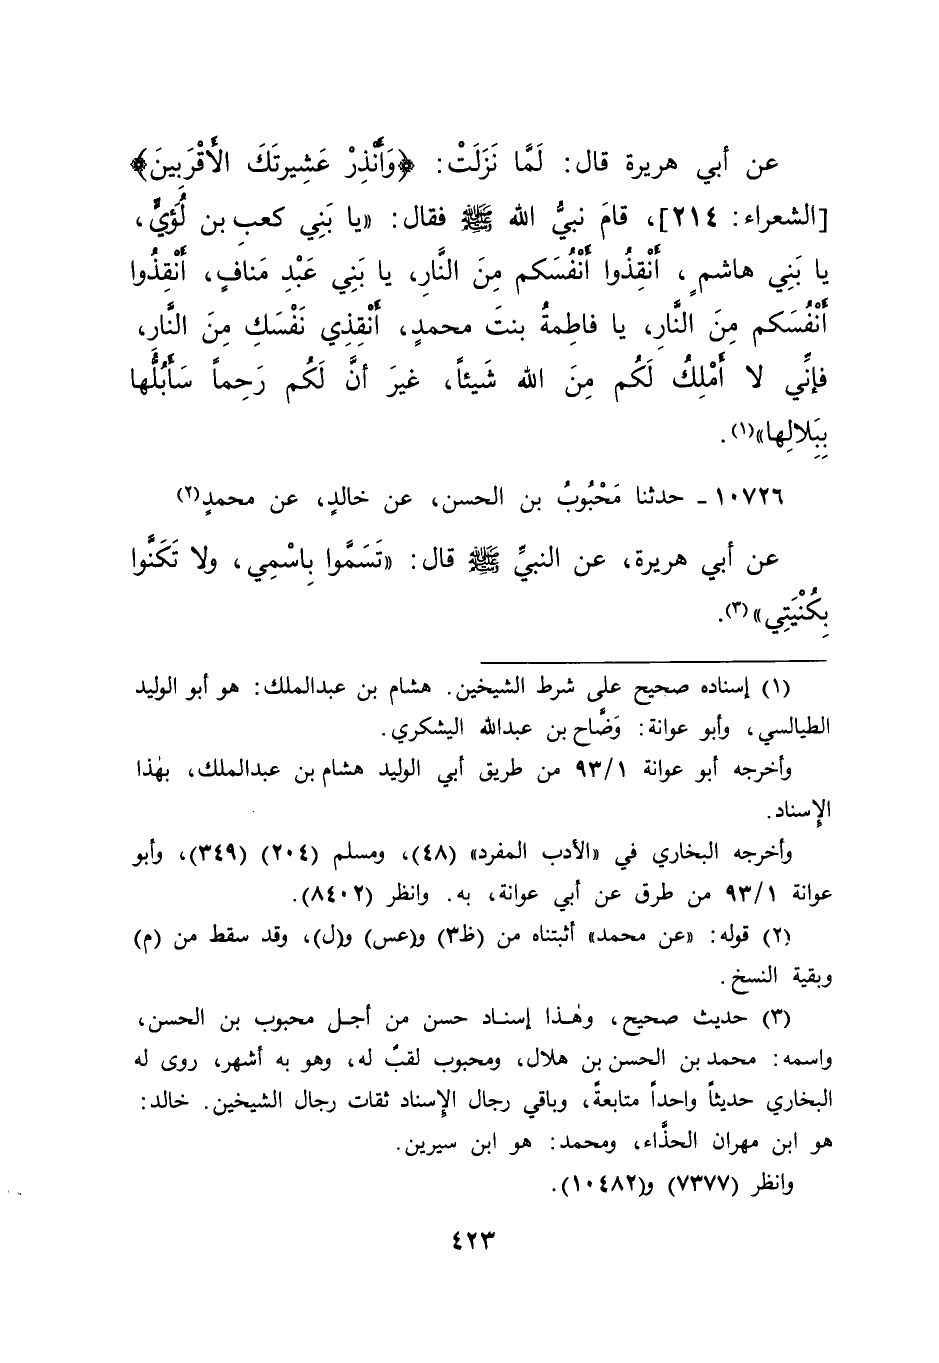 عن أبي هريرة قال: لَمَّا نَزَلَتْ: ﴿وَأَنْذِرْ عَشِيرتَكَ الأَقْرَبِينَ﴾
[الشعراء: ٢١٤]، قامَ نبيُّ الله ﷺ فقال: «يا بَنِي كعبِ بن لُؤَيٍّ،
يا بَنِي هاشمٍ، أَنْقِذُوا أَنْفُسَكم مِنَ النَّارِ، يا بَنِي عَبْدِ مَنافٍ، أَنْقِذُوا
أَنْفُسَكم مِنَ النَّارِ، يا فاطمةُ بنتَ محمدٍ، أَنْقِذِي نَفْسَكِ مِنَ النَّار،
فإنِّي لا أَمْلِكُ لَكُم مِنَ الله شَيئاً، غيرَ أنَّ لَكُم رَحِماً سَأَبُلُّها
بِبَلالِها»(١).
١٠٧٢٦ - حدثنا مَحْبُوبُ بن الحسن، عن خالدٍ، عن محمدٍ(٢)
عن أبي هريرة، عن النبيِّ ﷺ قال: «تَسَمَّوا بِاسْمِي، ولا تَكَنَّوا
بِكُنْيَتِي»(٣).
(١) إسناده صحيح على شرط الشيخين. هشام بن عبدالملك: هو أبو الوليد
الطيالسي، وأبو عوانة: وَضَّاح بن عبدالله اليشكري.
وأخرجه أبو عوانة ٩٣/١ من طريق أبي الوليد هشام بن عبدالملك، بهٰذا
الإسناد.
وأخرجه البخاري في «الأدب المفرد» (٤٨)، ومسلم (٢٠٤) (٣٤٩)، وأبو
عوانة ٩٣/١ من طرق عن أبي عوانة، به. وانظر (٨٤٠٢).
(٢) قوله: «عن محمد» أثبتناه من (ظ٣) و(عس) و(ل)، وقد سقط من (م)
وبقية النسخ.
(٣) حديث صحيح، وهٰذا إسناد حسن من أجل محبوب بن الحسن،
واسمه: محمد بن الحسن بن هلال، ومحبوب لقبٌ له، وهو به أشهر، روى له
البخاري حديثاً واحداً متابعةً، وباقي رجال الإسناد ثقات رجال الشيخين. خالد:
هو ابن مهران الحذَّاء، ومحمد: هو ابن سيرين.
وانظر (٧٣٧٧) و(١٠٤٨٢).
٤٢٣